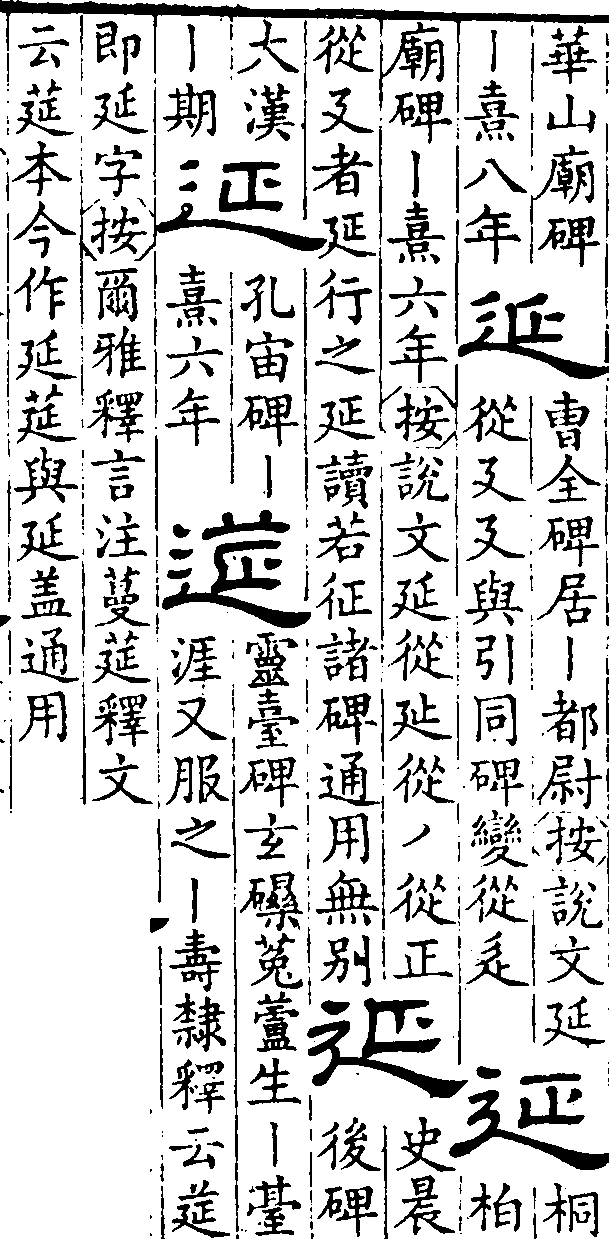 華山廟碑
丨熹八年
延
曹全碑居丨都尉按說文延
從廴廴與引同碑變從辵
延
桐
柏
廟碑丨熹六年按說文延從㢟從丿從正
從廴者延行之延讀若征諸碑通用無别
延
史晨
後碑
大漢
丨期
延
孔宙碑丨
熹六年
莚
靈臺碑玄菟蘆生丨薹
涯又服之丨壽隸釋云莚
即延字按爾雅釋言注蔓莚釋文
云莚本今作延莚與延盖通用